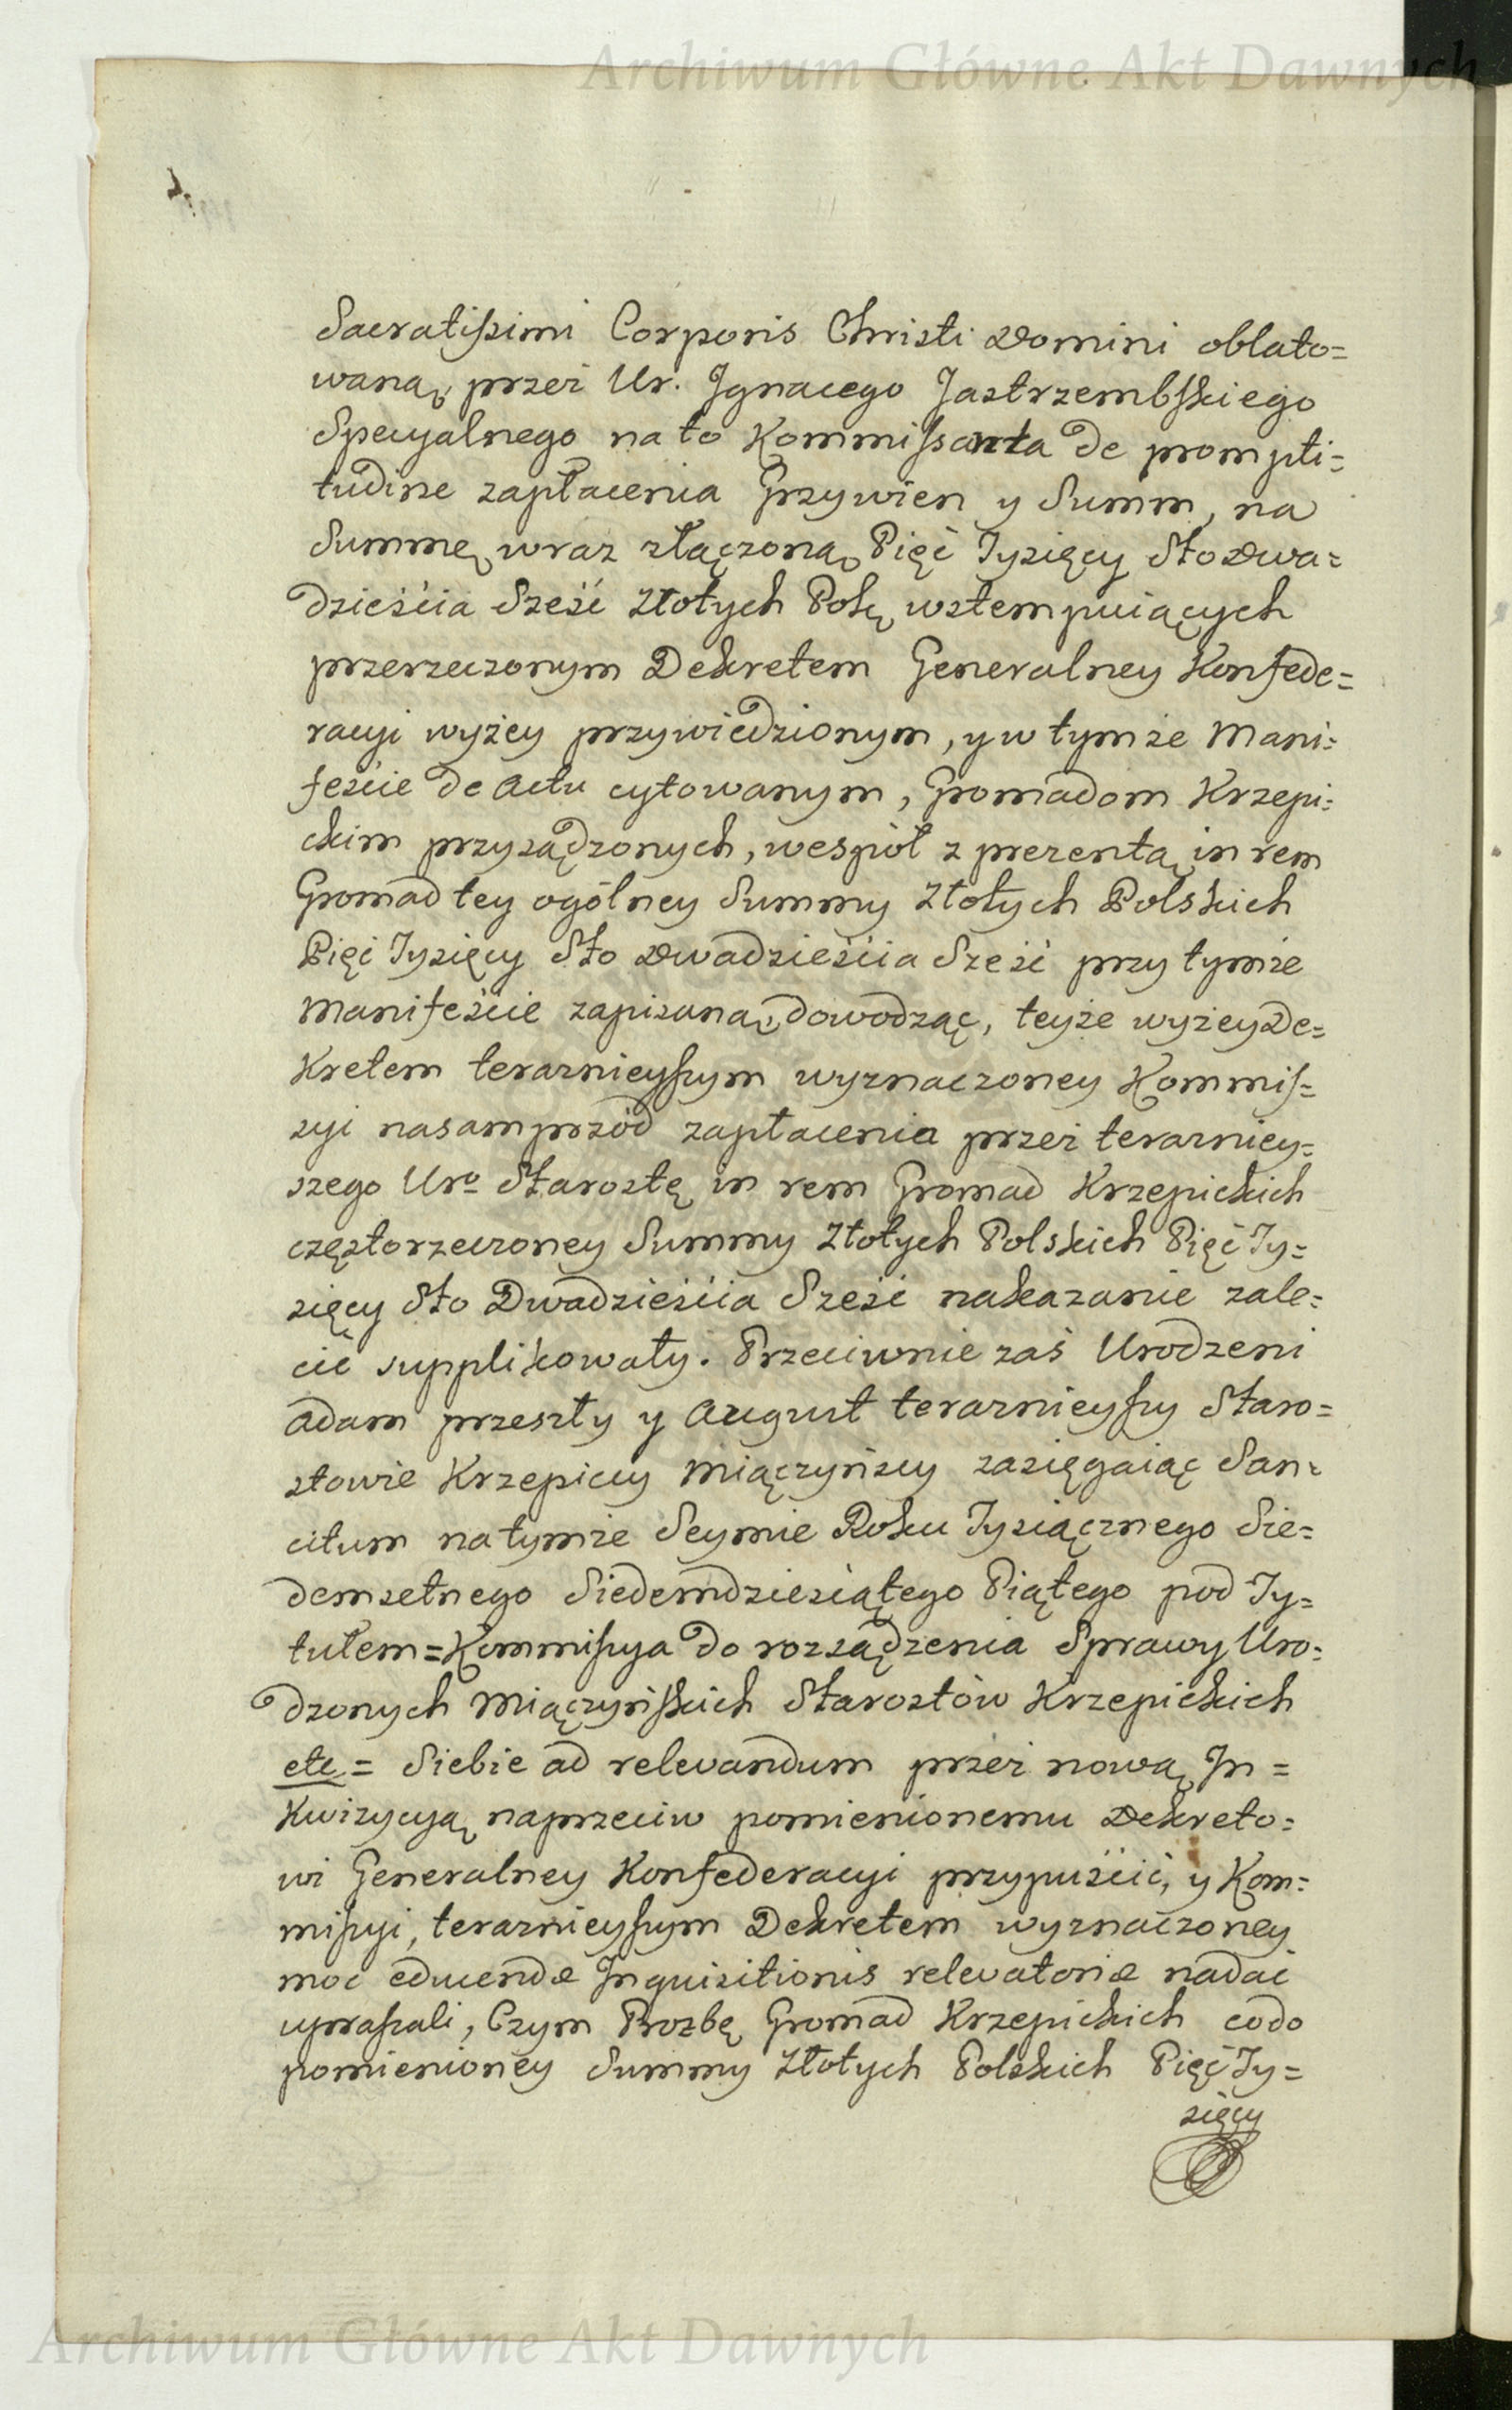 Archiwum Główne Akt Dawnych
Sacratissimi Corporis Christi Domini oblato=
waną, przez Ur. Jgnacego Jastrzembskiego
Specyalnego na to Kommissanta de prompti=
tudine zapłacenia Grzywien y Summ, na
Summę wraz złączoną Pięć Tysięcy Sto Dwa=
dzieścia Sześć Złotych Pols, wstempuiących
przerzeczonym Dekretem Generalney Konfede=
racyi wyżey przywiedzionym, y w tymże Mani=
feście de Actu cytowanym, Gromadom Krzepi=
ckim przysądzonych, wespół z prezentą in rem
Gromad tey ogólney Summy Złotych Polskich
Pięć Tysięcy Sto Dwadzieścia Sześć przy tymże
Manifeście zapisaną, dowodząc, teyże wyżey De=
kretem teraznieyszym wyznaczoney Kommis=
syi nasamprzód zapłacenia przez teraźniey=
szego Uro Starostę in rem Gromad Krzepickich
częstorzeczoney Summy Złotych Polskich Pięć Ty=
sięcy Sto Dwadzieścia Sześć nakazanie zale=
cić supplikowały. Przeciwnie zaś Urodzeni
Adam przeszły y August teraznieyszy Staro=
stowie Krzepiccy Miączyńscy zasięgaiąc San=
citum na tymże Seymie Roku Tysiącznego Sie=
demsetnego Siedemdziesiątego Piątego pod Ty=
tułem = Kommissya do rozsądzenia Sprawy Uro=
dzonych Miączyńskich Starostów Krzepickich
etc = Siebie ad relevandum przez nową In=
kwizycyą naprzeciw pomienionemu Dekreto=
wi Generalney Konfederacyi przypuścić, y Kom=
missyi, teraznieyszym Dekretem wyznaczoney
moc educendæ Inquisitionis relevatoriæ nadać
upraszali, Czym Prozbę Gromad Krzepickich co do
pomienioney Summy Złotych Polskich Pięć Ty=
sięcy
Archiwum Główne Akt Dawnych